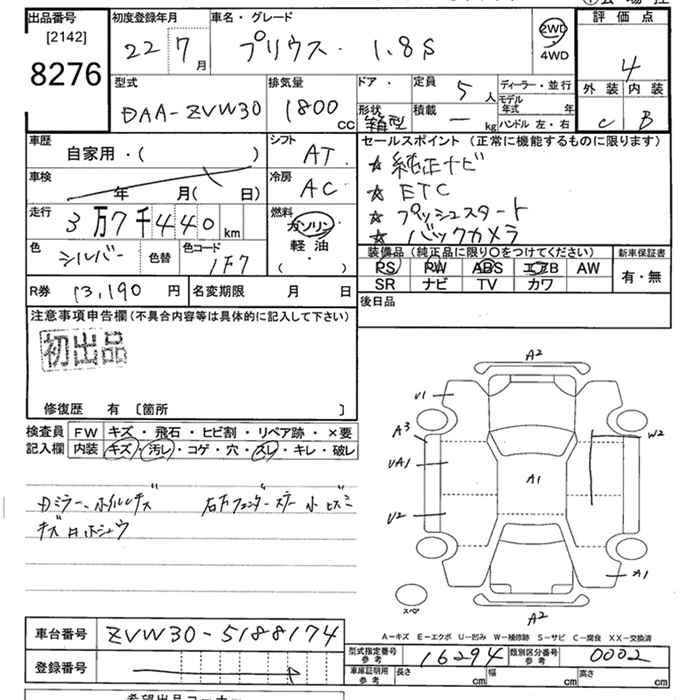 出品番号 [2142] 8276
初度登録年月 22 7月
車名・グレード プリウス・ 1.8S
2WD・4WD
評価点 4
外装 C 内装 B
型式 DAA-ZVW30
排気量 1800 CC
ドア・形状 箱型
定員 5人
積載 ー kg
ディーラー・並行
モデル年式 年
ハンドル 左・右
車歴 自家用・( )
シフト AT
車検 年 月( 日)
冷房 AC
走行 3万7千440km
燃料 ガソリン 軽油 ( )
色 シルバー 色替 色コード 1F7
セールスポイント (正常に機能するものに限ります)
☆純正ナビ
☆ETC
☆プッシュスタート
☆バックカメラ
装備品 (純正品に限り〇をつけてください) 新車保証書
PS PW ABS エアB AW 有・無
SR ナビ TV カワ
R券 13,190円 名変期限 月 日
後日品
注意事項申告欄(不具合内容等は具体的に記入して下さい)
初出品
修復歴 有 〔箇所 〕
検査員 FW キズ・飛石・ヒビ割・リペア跡・×要
記入欄 内装 キズ・汚レ・コゲ・穴・スレ・キレ・破レ
Dミラー、ホイルキズ
A2
U1
A3
W2
UA1
A1
U2
A1
スペア
A2
A-キズ E-エクボ U-凹み W-補修跡 S-サビ C-腐食 XX-交換済
車台番号 ZVW30-5188174
型式指定番号 参考 16294 類別区分番号 参考 0002
登録番号
車庫証明用 参考 長さ cm 幅 cm 高さ cm